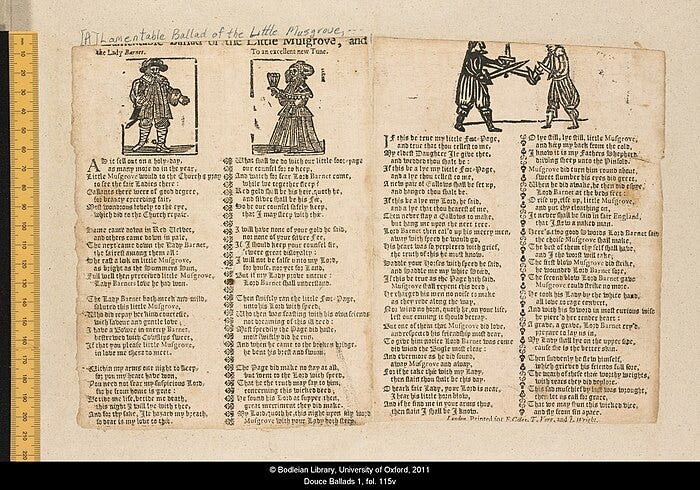 [A] Lamentable Ballad of the Little Musgrove,
Ballad of the Little Musgrove, and
the Lady Barnet. To an excellent new Tune.
AS it fell out on a holy-day,
as many more do in the year,
Little Musgrove would to the Church pray
to see the fair Ladies there:
Gallants there were of good degree,
for beauty exceeding fair,
Most wondrous lovely to the eye,
which did to the Church repair.
Some came down in Red Velvet,
and others came down in pale,
The next came down the Lady Barnet,
the fairest among them all:
She cast a look on little Musgrove,
as bright as the Summers Sun,
Full well then perceived little Musgrove,
Lady Barnets love he had won.
The Lady Barnet both meek and mild,
saluted this little Musgrove,
Who did repay her kind courtesie,
with favour and gentle love;
I have a Bower in merry Barnet,
bestrewed with Cowslips sweet,
If that you please little Musgrove,
in love me there to meet:
Within my arms one night to sleep,
for you my heart have won,
You need not fear my suspicious Lord,
for he from home is gone:
Betide me life, betide me death,
this night I will lye with thee,
And for thy sake, Ile hazard my breath,
so dear is my love to thee.
What shall we do with our little foot-page
our counsel for to keep,
And watch for fear Lord Barnet come,
while we together sleep?
Red gold shall be his hire, quoth he,
and silver shall be his Fee,
So he our counsel safely keep,
that I may sleep with thee.
I will have none of your gold he said,
nor none of your silver Fee,
If I should keep your counsel Sir,
'twere great disloyalty:
I will not be false unto my Lord,
for house, nor yet for Land,
But if my Lady prove untrue:
Lord Barnet shall understand.
Then swiftly ran the little Foot-Page,
unto his Lord with speed,
Who then was feasting with his own friends
not dreaming of this ill deed:
Most speedily the Page did haste,
most swiftly did he run,
And when he came to the broken bridge,
he bent his brest and swum.
The Page did make no stay at all,
but went to the Lord with speed,
That he the truth may say to him,
concerning this wicked deed;
He found his Lord at supper then,
great merriment they did make.
My Lord, quoth he, this night upon my word
Musgrove with your Lady doth sleep.
IF this be true my little Foot-Page,
and true that thou tellest to me,
My eldest Daughter Ile give thee,
and wedded thou shalt be:
If this be a lye my little Foot-Page,
and a lye that thou tellest to me,
A new pair of Gallows shall be set up,
and hanged thou shalt be.
If this be a lye my Lord, he said,
and a lye that thou hearest of me,
Then never stay a Gallows to make,
but hang me upon the next tree:
Lord Barnet then call'd up his merry men,
away with speed he would go,
His heart was so perplexed with grief,
the truth of this he must know.
Saddle your Horses with speed he said,
and saddle me my white Steed,
If this be true as the Page hath said,
Musgrove shall repent this deed;
He charged his men no noise to make
as they rode along the way,
Nor wind no horn, quoth he, on your life,
lest our coming it should betray.
But one of them that Musgrove did love,
and respected his friendship most dear,
To give him notice Lord Barnet was come
did wind the Bugle most clear:
And evermore as he did sound,
away Musgrove and away,
For if he take thee with my Lady,
then slain thou shalt be this day.
O heark fair Lady, your Lord is near,
I hear his little horn blow,
And if he find me in your arms thus,
then slain I shall be I know.
O lye still, lye still, little Musgrove,
and keep my back from the cold,
I know it is my Fathers Shepherd
driving sheep unto the Pinfold.
Musgrove did turn him round about,
sweet slumber his eyes did greet,
When he did awake, he then did espye
Lord Barnet at the beds feet:
O rise up, rise up, little Musgrove,
and put thy cloathing on,
It never shall be said in fair England,
that I slew a naked man.
Here's two good Swords Lord Barnet said
the choice Musgrove shall make.
The best of them thy self shall have,
and I the worst will take;
The first blow Musgrove did strike,
he wounded Lord Barnet sore,
The second blow Lord Barnet gave
Musgrove could strike no more.
He took his Lady by the white hand,
all love to rage convert,
And with his sword in most curious wise
he pierc'd her tender heart:
A grave, a grave, Lord Barnet cry'd
prepare to lay us in,
My Lady shall lye on the upper side,
cause she is the better skin.
Then suddenly he slew himself,
which grieves his friends full sore,
The death of these three worthy wights,
with tears they did deplore.
This sad mischief by lust was wrought,
then let us call for grace,
That we may shun this wicked vice,
and fly from sin apace.
London, Printed for F. Coles, T. Vere, and J. Wright.
© Bodleian Library, University of Oxford, 2011
Douce Ballads 1, fol. 115v